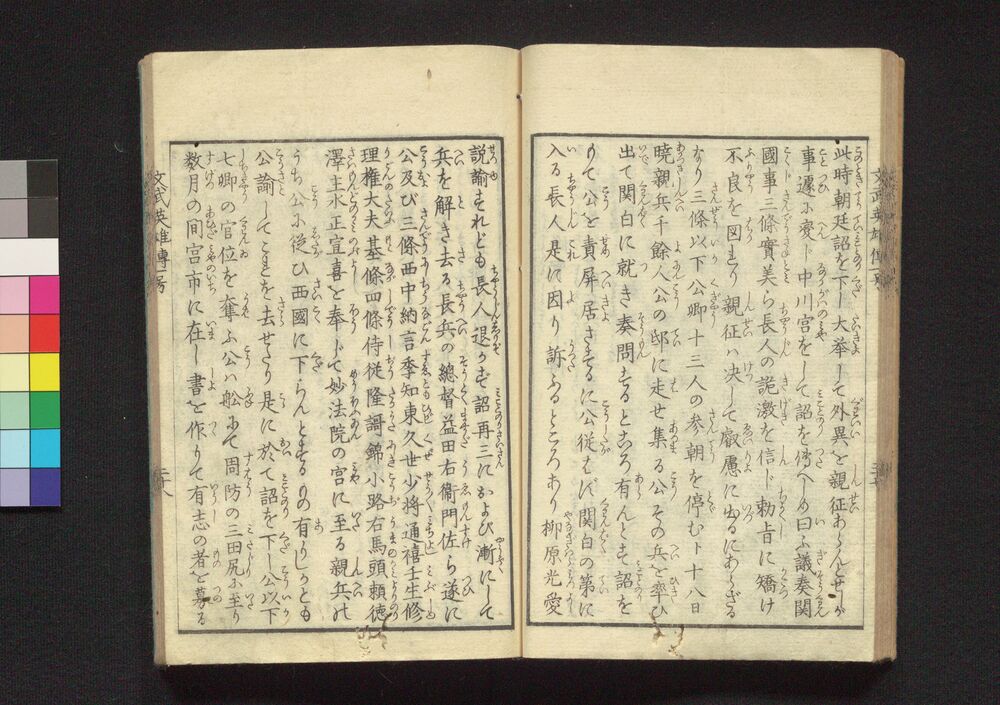 此時朝廷詔を下し大挙して外異を親征あらんとせしが
事遽に変じ中川宮をして詔を傳へしめ曰ふ議奏関
国事三條實美ら長人の詭激を信じ勅旨に矯け
不良を図まり親征ハ决して叡慮に出るにあらざる
なり三條以下公卿十三人の参朝を停むト十八日
暁親兵千餘人公の邸に走せ集る公その兵を率ひ
出て関白に就き奏問するところ有んとす詔を
もて公を責屏居さするに公従もず関白の第に
入る長人是に因り訴ふるところあり柳原光愛
説諭すれども長人退かず詔再三におよび漸にして
兵を解き去る長兵の總督益田右衞門佐ら遂に
公及び三條西中納言季知東久世少将通禧壬生修
理権大夫基修四條侍従隆謌錦小路右馬頭頼徳
澤主水正宣喜を奉じて妙法院の宮に至る親兵の
うち公に従ひ西國に下らんとするもの有りしかとも
公諭してこれを去せたり是に於て詔を下し公以下
七卿の官位を奪ふ公ハ船にて周防の三田尻に至り
数月の間宮市に在し書を作りて有志の者を募る
文武英雄傳一号
二十八